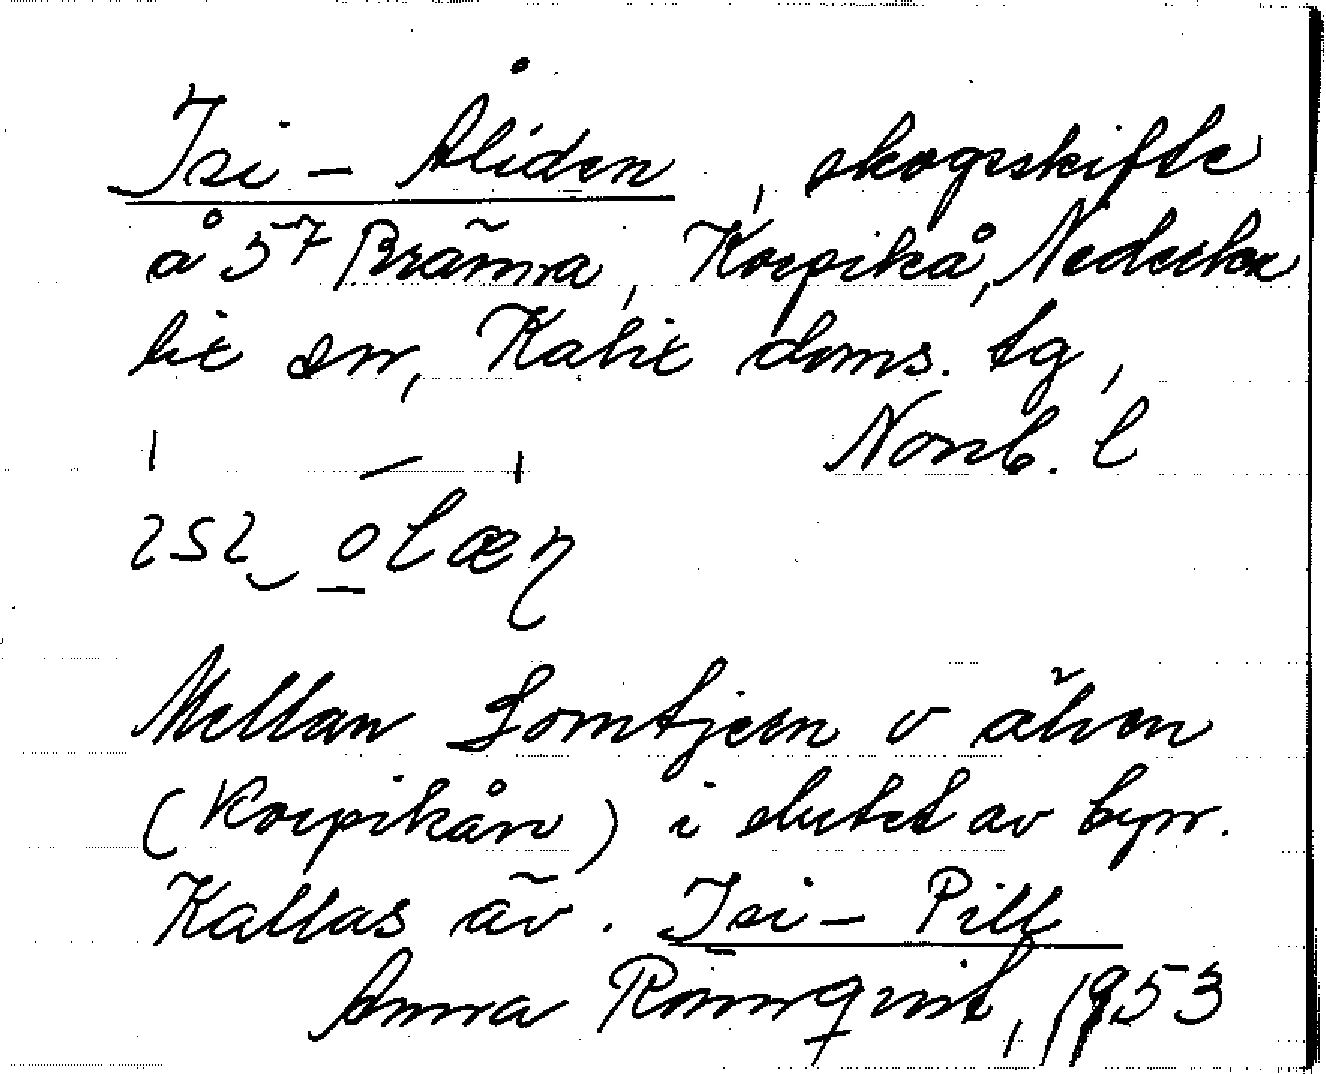 Isi - Åliden, skogsskifte
å 5⁷ Bränna, Korpikå, Nederka
lix sn, Kalix doms. tg,
Norrb. l
ɩsɩ ōlæɳ
Mellan Lomtjern o älven
(Korpikån) i slutet av byn.
Kallas äv. Isi - Pill
Anna Rönnqvist, 1953